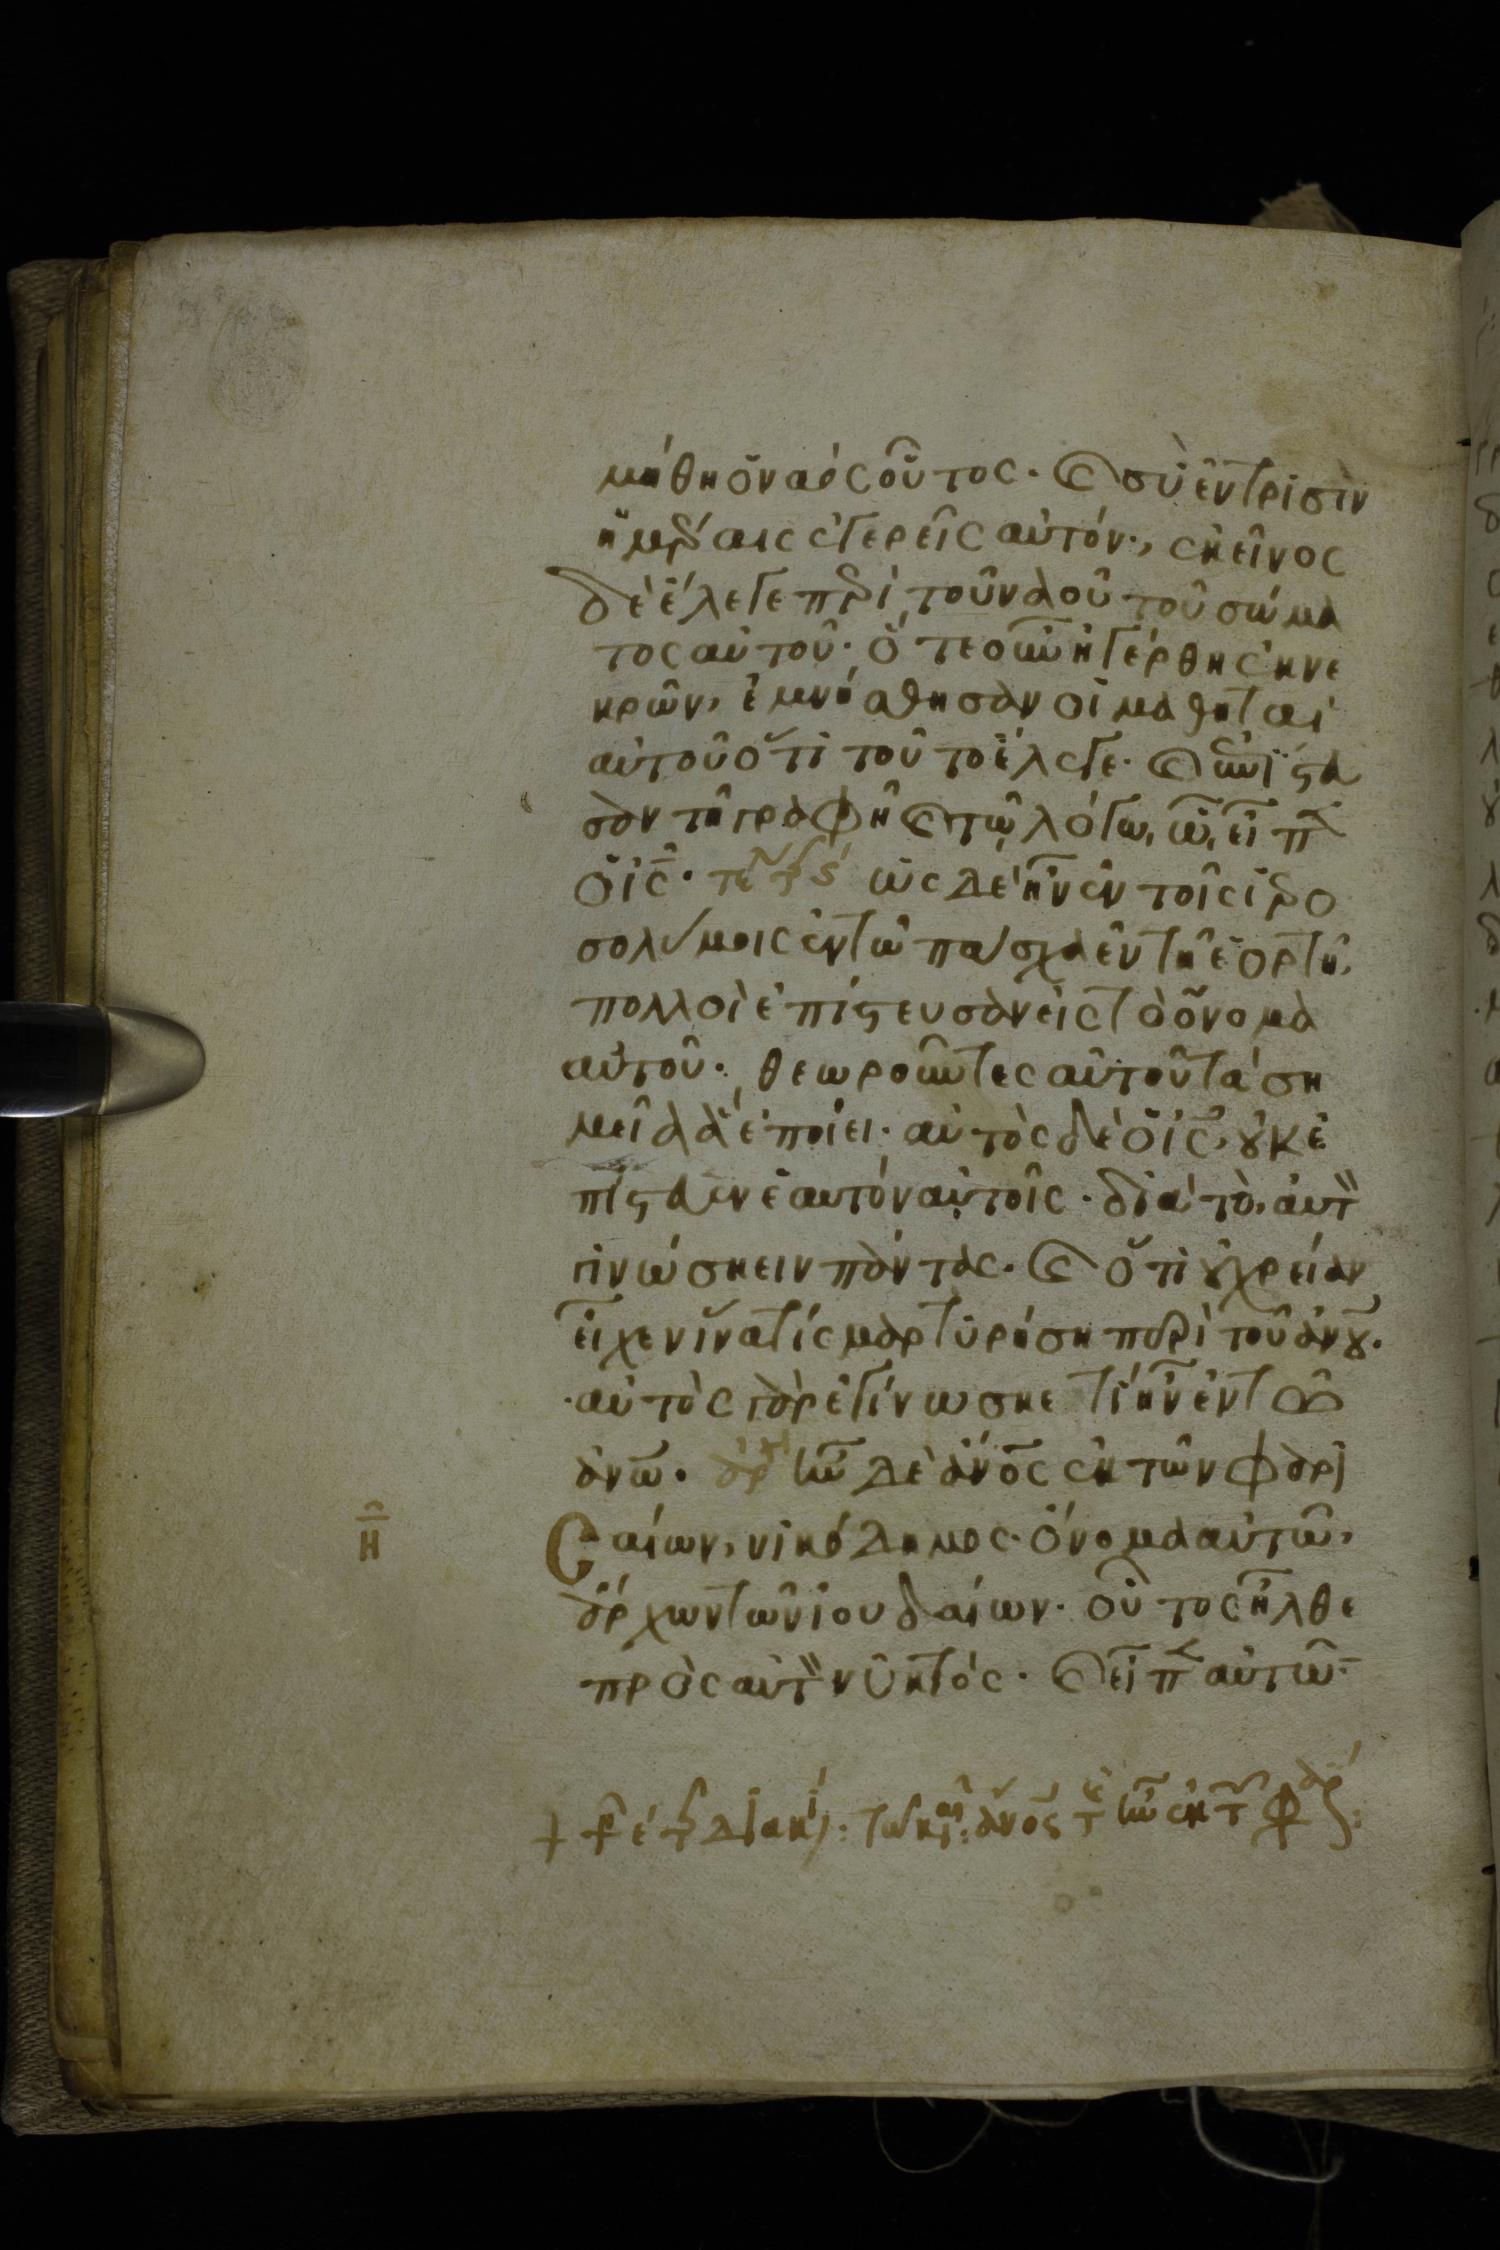 μήθη ὁ ναὸς οὗτος· καὶ σὺ ἐν τρισὶν
ἡμέραις ἐγερεῖς αὐτόν., ἐκεῖνος
δὲ ἔλεγε περὶ τοῦ ναοῦ τοῦ σώμα
τος αὐτοῦ· ὅτε οὖν ἠγέρθη ἐκ νε
κρῶν, ἐμνήσθησαν οἱ μαθηταὶ
αὐτοῦ ὅτι τοῦτο ἔλεγε· καὶ ἐπίστευ
σαν τῇ γραφῇ καὶ τῷ λόγω, ὧ, εἶπ
ὁ ις· τε τ ς ὡς δὲ ἦν ἐν τοῖς ἱερο
σολύμοις ἐν τῶ πάσχα ἐν τῇ ἑορτῇ,
πολλοὶ ἐπίστευσαν εἰς τὸ ὄνομα
αὐτοῦ· θεωροῦντες αὐτοῦ τὰ ση
μεῖα ἃ ἐποίει· αὐτὸς δὲ ὁ ις, οὐκ ἐ
πίστευεν ἑαυτὸν αὐτοῖς· διὰ τὸ, αὐτ
γινώσκειν πάντας· καὶ ὅτι οὐ χρείαν
εἶχεν ἵνα τίς μαρτυρήση περὶ τοῦ ἀνου·
·αὐτὸς γὰρ ἐγίνωσκε τί ἦν ἐν τῶ
ἀνω· ἀρχ ἦν δὲ ἀνος ἐκ τῶν φαρι
σαίων, νικόδημος· ὄνομα αὐτῶ,
η
ἄρχων τῶν ἰουδαίων· οὗτος ἦλθε
πρὸς αὐτ νυκτός· καὶ εἶπ αὐτῶ